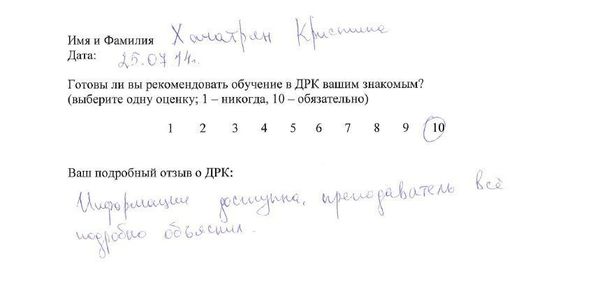 Имя и Фамилия Хачатрян Кристина
Дата: 25.07.14г.
Готовы ли вы рекомендовать обучение в ДРК вашим знакомым?
(выберите одну оценку; 1 – никогда, 10 – обязательно)
1 2 3 4 5 6 7 8 9 10
Ваш подробный отзыв о ДРК:
Информация доступна, преподаватель всё
подробно объяснил.